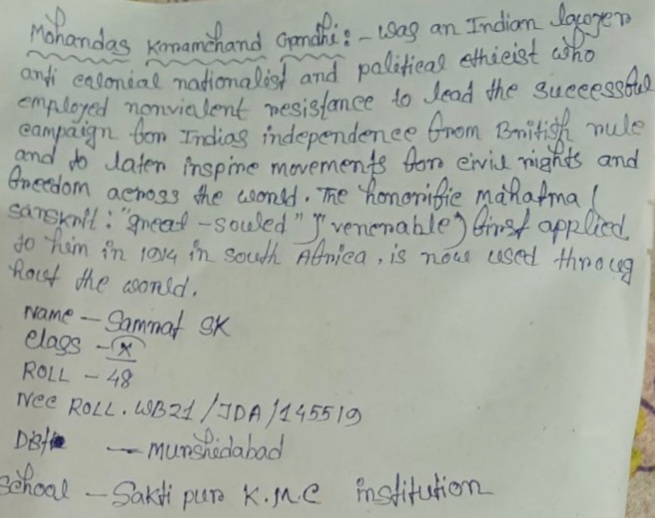 Mohandas Karamchand Gandhi:- was an Indian lawyer
anti colonial nationalist and political ethicist who
employed nonviolent resistance to lead the successful
campaign for Indias independence from British rule
and to later inspire movements for civil rights and
freedom across the world. The honorific mahatma (
sanskrit: "great-souled" "venerable) first applied
to him in 1914 in South Africa, is now used throug
hout the world.
Name - Samrat SK
Class - X
ROLL - 48
Nec ROLL. WB21/JDA/145519
Dist - Murshidabad
School - Saktipur K.M.C institution